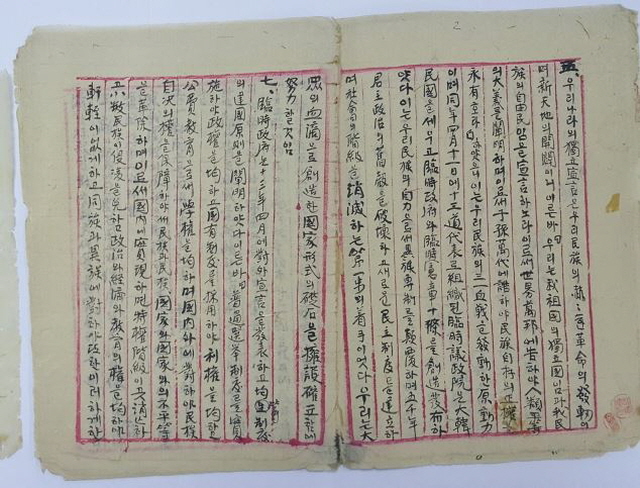 五、우리나라의 獨立宣言은 우리民族의 革命의 發動이
며 新天地의 開闢이니 이른바 우리는 我祖國의 獨立國임과 我民
族의 自由民임을 宣言하노라 이로써 世界萬邦에 告하야 人類平等
의 大義를 闡明하며 이로써 子孫萬代에 誥하야 民族自存의 正權을
永有하라 하엿는바 이는 우리民族의 三一血戰을 發動한 原動力
이며 同年四月十一日에 十三道代表로 組織된 臨時議政院은 大韓
民國을 세우고 臨時政府와 臨時憲章十條를 創造發布하
얏다 이는 우리民族의 自力으로써 異族專制를 顚覆하며 五千年
君主政治의 舊殼을 破壞하고 새로운 民主制度를 建立하
며 社會의 階級을 消滅하는 第一步의 着手이엿다 우리는 大
衆의 血滴으로 創造한 國家形式의 礎石을 擁護確立함에
努力할것임
七、臨時政府는 十三年四月에 對外宣言을 發表하고 三均制度
의 建國原則을 闡明하얏다 이른바 普通選擧制度를 實
施하야 政權을 均하고 國有制度를 採用하야 利權을 均하고
公費敎育으로써 學權을 均하며 國內外에 對하야 民族
自決의 權을 保障하야써 民族과 民族 國家와 國家와의 不平等
을 革除하며 이로써 國內에 實現하면 特權階級이 곳 消亡하
고 少數民族이 侵凌을 免하고 政治와 經濟와 敎育의 權을 均하야
軒輊이 업게하고 同族과 異族에 對하야 또한 이러하게한